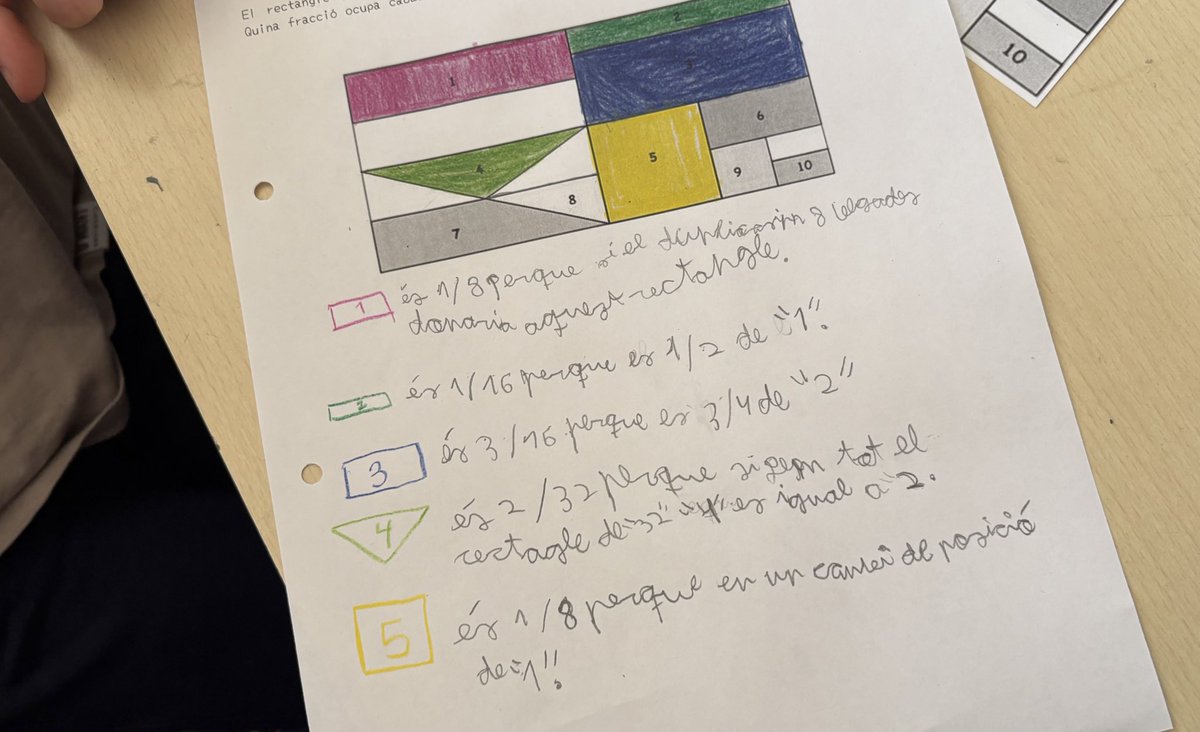 El rectangle
Quina fracció ocupa cada
1
2
3
4
5
6
7
8
9
10
10
1 és 1/8 perque si el duplicarim 8 
donaria aquest rectangle.
2 és 1/16 perque es 1/2 de "1".
3 és 3/16 perque es 3/4 de "2"
4 és 2/32 perque si fem tot el
rectagle de "32" "4" es igual a "2.
5 és 1/8 perque en un canvi de posició
de "1".